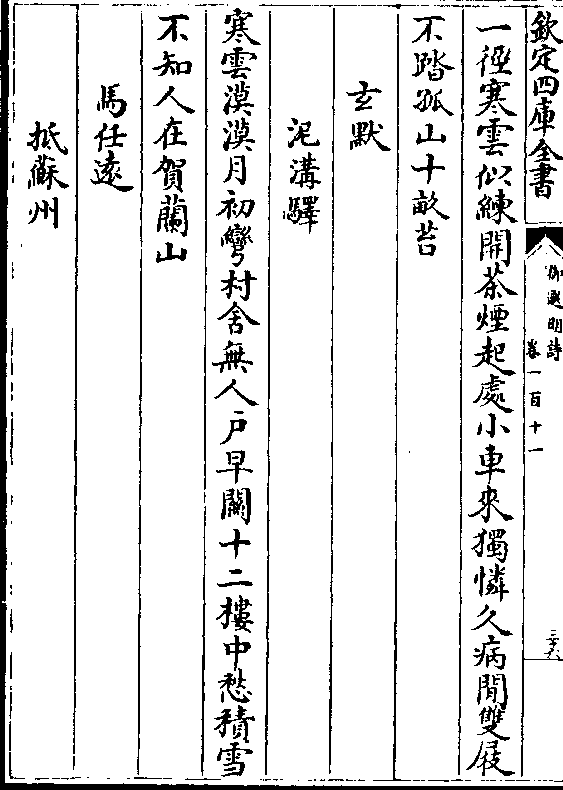 欽定四庫全書
御選明詩
卷一百十一
三十六
一徑寒雲似練開茶煙起處小車來獨憐久病閒雙屐
不踏孤山十畝苔
玄默
泥溝驛
寒雲漠漠月初彎村舍無人戶早關十二樓中愁積雪
不知人在賀蘭山
馬任遠
抵蘇州